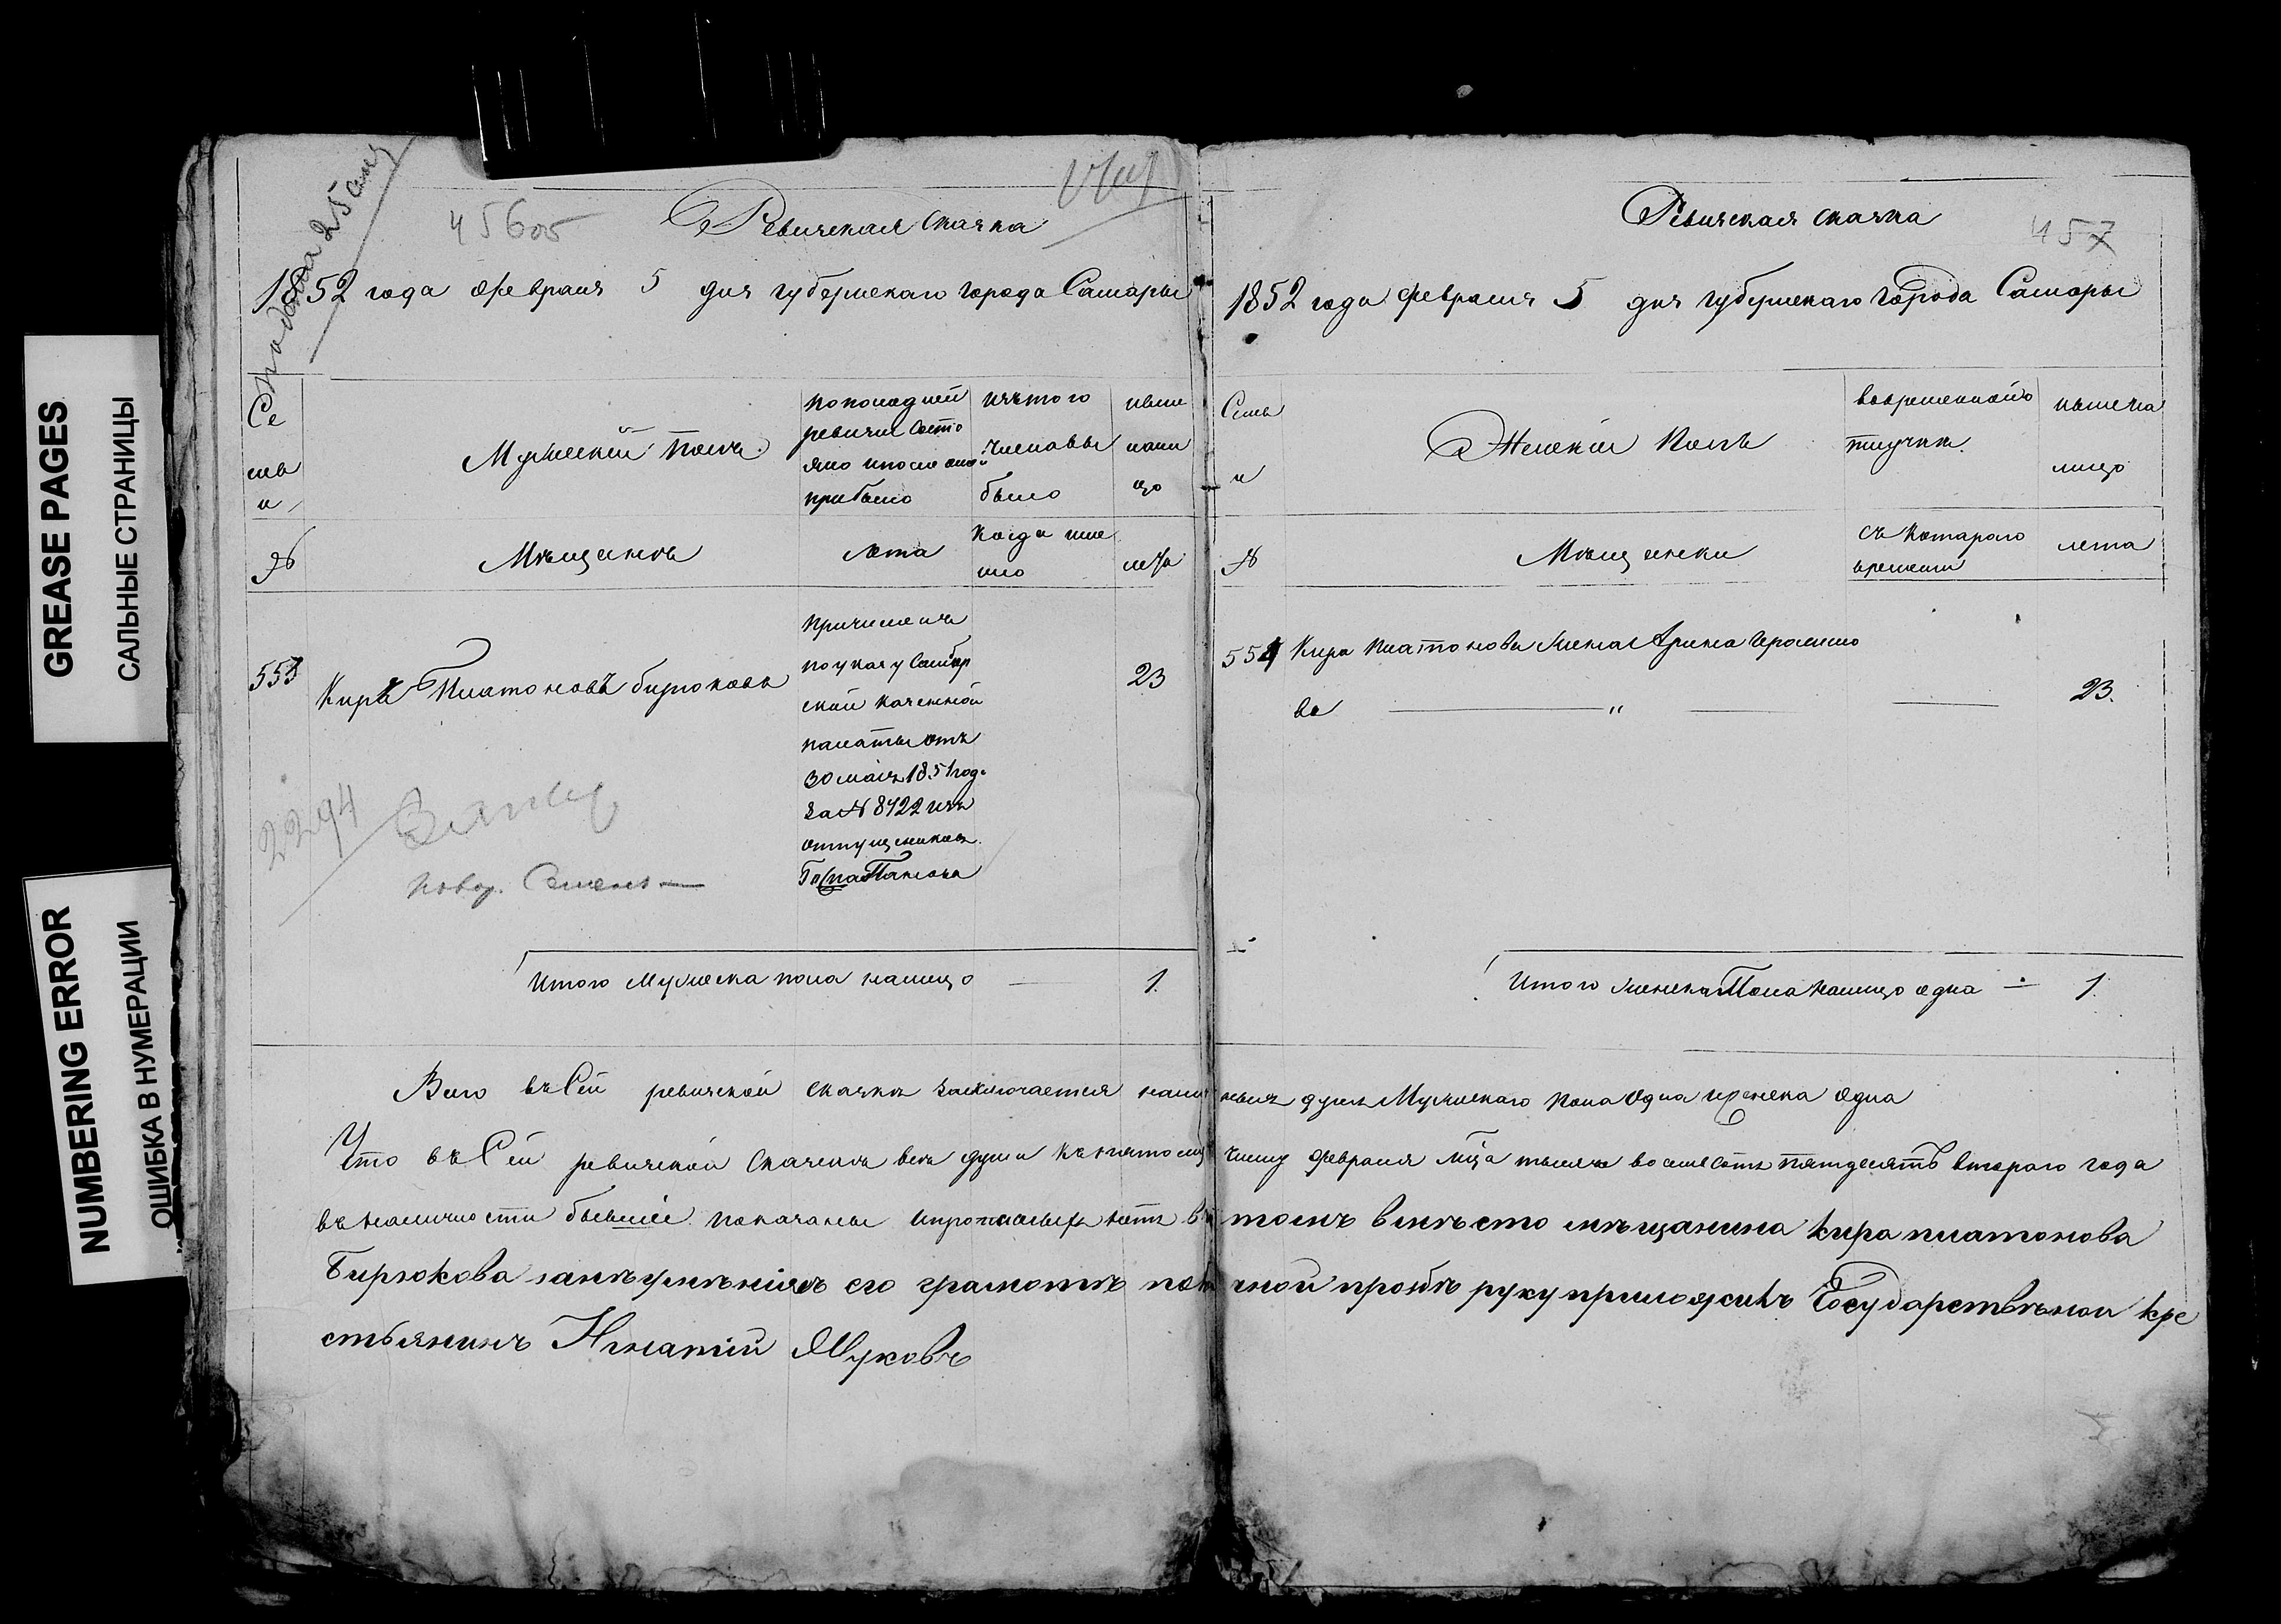 GREASE PAGES
САЛЬНЫЕ СТРАНИЦЫ
NUMBERING ERROR
ОШИБКА В НУМЕРАЦИИ
456об
Ревизская сказка
1852 года февраля 5 дня губернскаго города Самары
Се
мь
и
Мужескій полъ
по последней
ревизіи состо
яло и после оной
прибыло
изъ того
числа вы
было
ныне
нали
цо
№
Мещанинъ
лета
Когда имен
но
лета
553
Киръ Платоновъ бирюковъ
причисленъ
по указу Самар
ской казенной
палаты отъ
30 мая 1851 года
за № 8422 изъ
отпущениковъ
Госпа Панова
23
2294
новор. Семенъ —
Итого Мужеска пола налицо — 1.
Ревизская сказка
457
1852 года февраля 5 дня губернскаго города Самары
Семь
и
Женскій полъ
во временной
отлучки
ныне на
лицо
№
Мещанки
съ котораго
времени
лета
554 Кира Платонова жена Арина Герасимо
ва — „ — — 23.
Итого женска Пола налицо одна — 1.
Всего въ Сей ревизской сказке заключается наличныхъ душъ Мужескаго пола Одна и женска Одна
Что въ Сей ревизской сказке все души къ пятому числу февраля мца тысяча восемьсотъ пятдесятъ втораго года
въ наличности бывшіе показаны и прописныхъ нетъ въ томъ вместо мещанина кира платонова
Бирюкова занеуменіемъ его грамоте по личной прозбе руку приложилъ Государствѣной кре
стьянинъ Игнатій Жуковъ